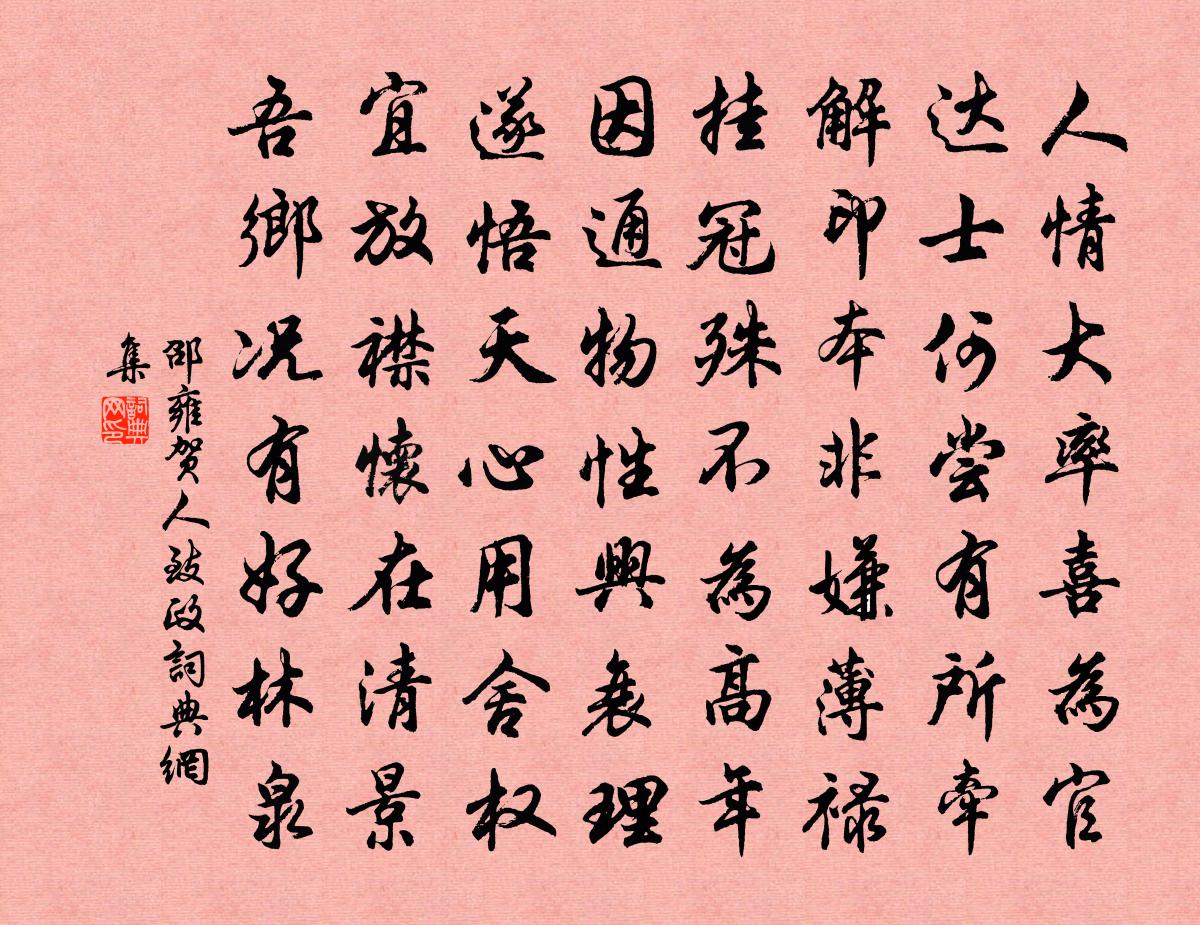 人情大率喜為官
达士何尝有所牵
解印本非嫌薄禄
挂冠殊不為高年
因通物性興衰理
遂悟天心用舍权
宜放襟懷在清景
吾鄉况有好林泉
邵雍贺人致政詞典網
集
詞典
网印